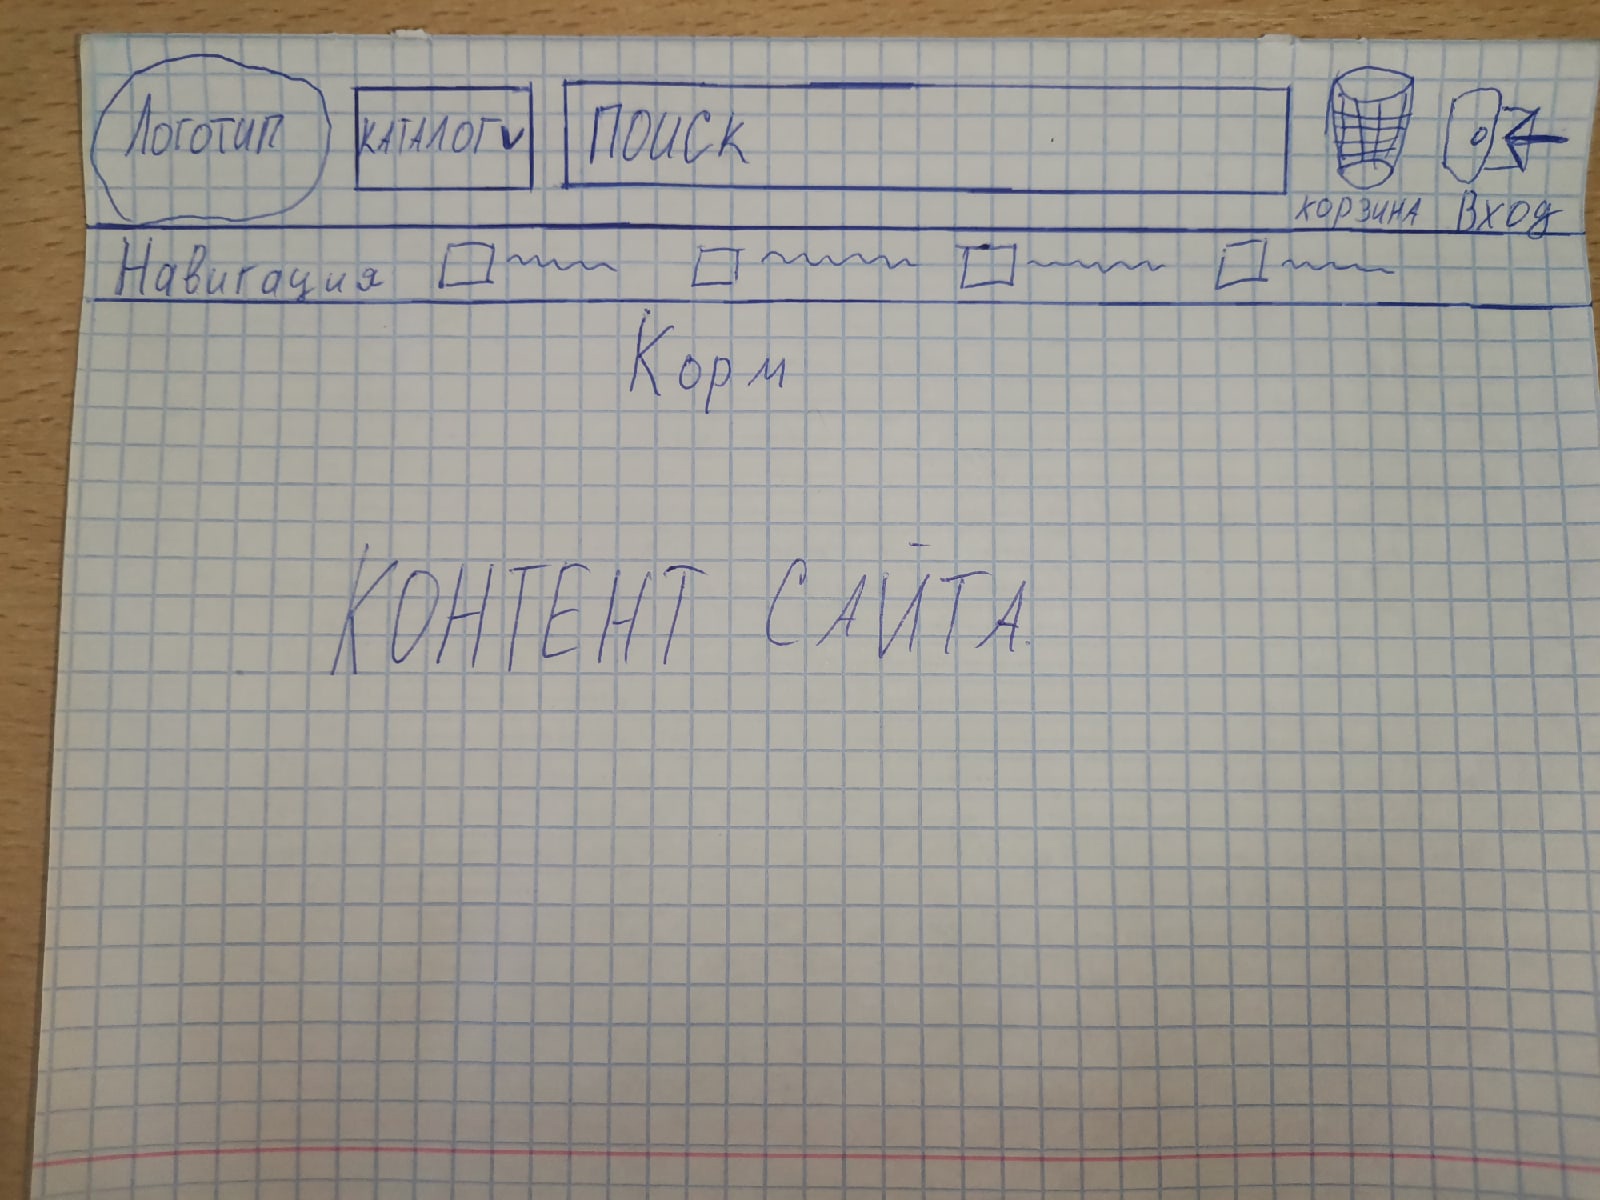 Логотип КАТАЛОГ ПОИСК
КОРЗИНА Вход
Навигация
Корм
КОНТЕНТ САЙТА.